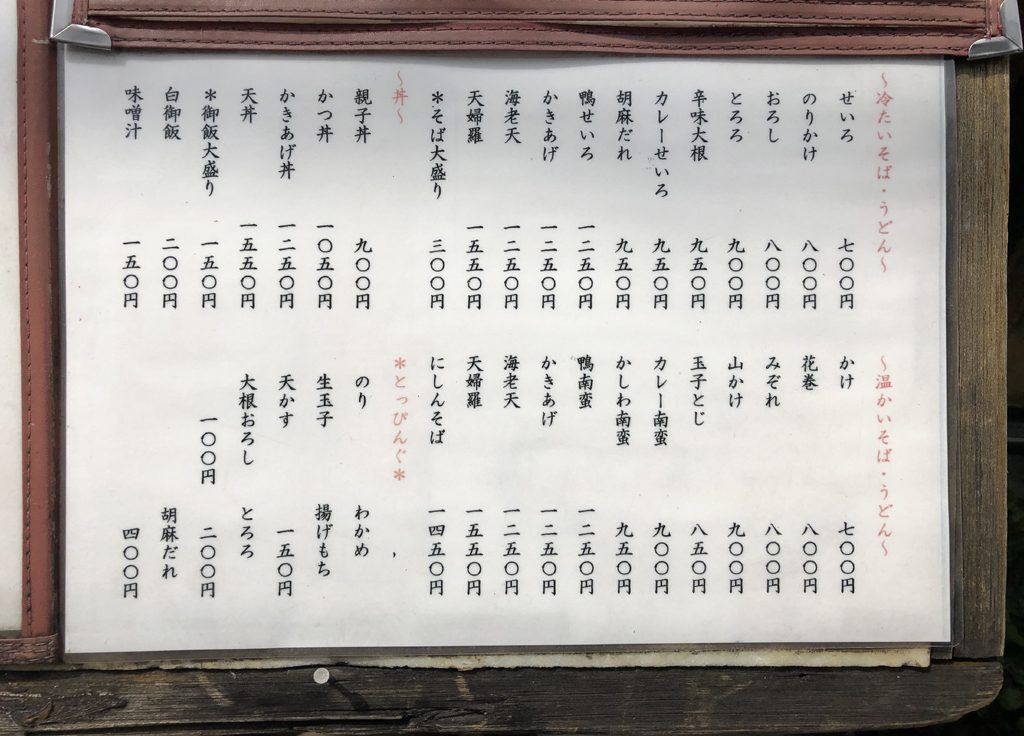 ～冷たいそば・うどん～
せいろ 七〇〇円
のりかけ 八〇〇円
おろし 八〇〇円
とろろ 九〇〇円
辛味大根 九五〇円
カレーせいろ 九五〇円
胡麻だれ 九五〇円
鴨せいろ 一二五〇円
かきあげ 一二五〇円
海老天 一二五〇円
天婦羅 一五五〇円
＊そば大盛り 三〇〇円
～温かいそば・うどん～
かけ 七〇〇円
花巻 八〇〇円
みぞれ 八〇〇円
山かけ 九〇〇円
玉子とじ 八五〇円
カレー南蛮 九〇〇円
かしわ南蛮 九五〇円
鴨南蛮 一二五〇円
かきあげ 一二五〇円
海老天 一二五〇円
天婦羅 一五五〇円
にしんそば 一四五〇円
～丼～
親子丼 九〇〇円
かつ丼 一〇五〇円
かきあげ丼 一二五〇円
天丼 一五五〇円
＊御飯大盛り 一五〇円
白御飯 二〇〇円
味噌汁 一五〇円
＊とっぴんぐ＊
のり
生玉子
天かす
大根おろし
一〇〇円
わかめ
揚げもち
一五〇円
とろろ
二〇〇円
胡麻だれ
四〇〇円